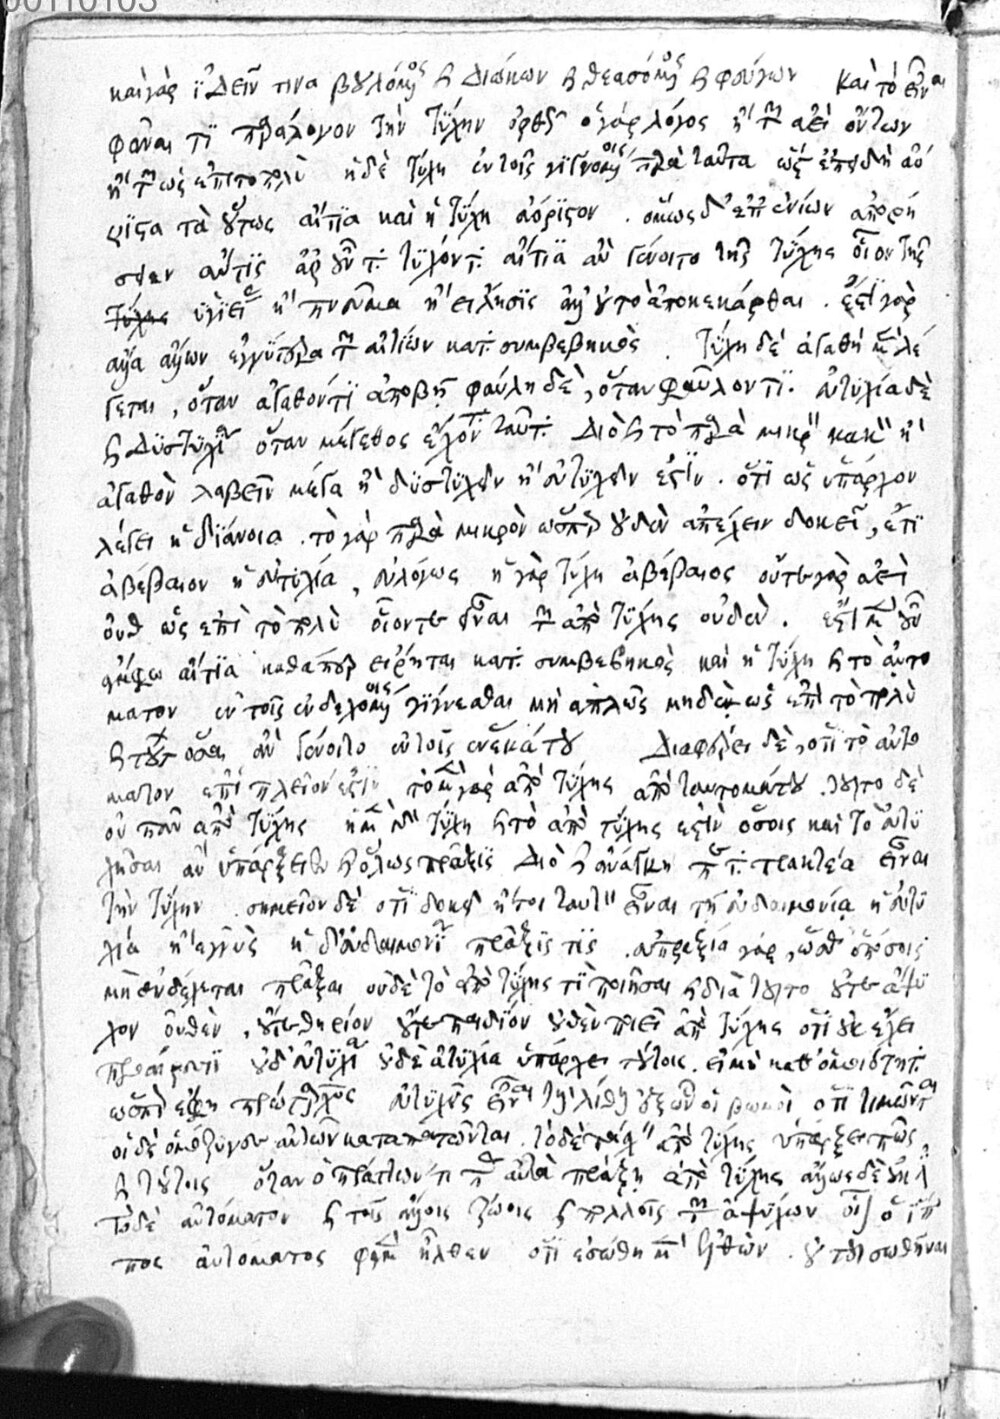 00110103
καὶ γὰρ ἰδεῖν τινα βουλόμενος καὶ διώκων καὶ θεασόμενος καὶ φεύγων καὶ τὸ εἶναι
φάναι τι παράλογον τὴν τύχην ὀρθῶς ὁ γὰρ λόγος ἢ τῶν ἀεὶ ὄντων
ἢ τῶν ὡς ἐπιτοπολὺ ἡ δὲ τύχη ἐν τοῖς γιγνομένοις παρὰ ταῦτα ὥστ' ἐπειδὴ ἀό
ριστα τὰ οὕτως αἴτια καὶ ἡ τύχη ἀόριστον . ὅμως δ' ἐπ' ἐνίων ἀπορή
σειεν ἄν τις ἆρ' οὖν τὰ τυχόντα αἴτια ἂν γένοιτο τῆς τύχης οἷον τῆς
τύχης ὑγιείας ἢ πνεῦμα ἢ εἵλησις ἀλλ' οὐ τὸ ἀποκεκάρθαι . ἔστι γὰρ
ἄλλα ἄλλων ἐγγύτερα τῶν αἰτίων κατὰ συμβεβηκὸς . τύχη δὲ ἀγαθὴ μὲν λέ
γεται , ὅταν ἀγαθόν τι ἀποβῇ φαύλη δὲ , ὅταν φαῦλον τι . εὐτυχία δὲ
καὶ δυστυχία ὅταν μέγεθος ἔχοντα ταῦτα διὸ καὶ τὸ παρὰ μικρὸν κακὸν ἢ
ἀγαθὸν λαβεῖν μέγα ἢ δυστυχεῖν ἢ εὐτυχεῖν ἐστὶν . ὅτι ὡς ὑπάρχον
λέγει ἡ διάνοια . τὸ γὰρ παρὰ μικρὸν ὥσπερ οὐδὲν ἀπέχειν δοκεῖ , ἔτι
ἀβέβαιον ἡ εὐτυχία , εὐλόγως ἡ γὰρ τύχη ἀβέβαιος οὔτε γὰρ ἀεὶ
οὔθ' ὡς ἐπὶ τὸ πολὺ οἷόντε εἶναι τῶν ἀπὸ τύχης οὐδὲν . ἔστι μὲν οὖν
ἄμφω αἴτια καθάπερ εἴρηται κατὰ συμβεβηκὸς καὶ ἡ τύχη καὶ τὸ αὐτό
ματον ἐν τοῖς ἐνδεχομένοις γίγνεσθαι μὴ ἁπλῶς μηδὲ ὡς ἐπὶ τὸ πολὺ
καὶ τούτων ὅσα ἂν γένοιτο ἐν τοῖς ἕνεκά του Διαφέρει δὲ , ὅτι τὸ αὐτό
ματον ἐπὶ πλεῖον ἐστὶν τὸ μὲν γὰρ ἀπὸ τύχης ἀπὸ ταυτομάτου . τοῦτο δὲ
οὐ πᾶν ἀπὸ τύχης ἡ μὲν γὰρ τύχη καὶ τὸ ἀπὸ τύχης ἐστὶν ὅσοις καὶ τὸ εὐτυ
χῆσαι ἂν ὑπάρξειεν καὶ ὅλως πρᾶξις διὸ καὶ ἀνάγκη περὶ τὰ πρακτέα εἶναι
τὴν τύχην σημεῖον δὲ ὅτι δοκεῖ ἤτοι ταυτὸν εἶναι τῇ εὐδαιμονίᾳ ἡ εὐτυ
χία ἢ ἐγγὺς ἡ δ' εὐδαιμονία πρᾶξις τις . εὐπραξία γάρ , ὥσθ' ὁπόσοις
μὴ ἐνδέχεται πρᾶξαι οὐδὲ τὸ ἀπὸ τύχης τι ποιῆσαι καὶ διὰ τοῦτο οὔτε ἄψυ
χον οὐθὲν , οὔτε θηρίον οὔτε παιδίον οὐθὲν ποιεῖ ἀπὸ τύχης ὅτι οὐκ ἔχει
προαίρεσιν οὐδ' εὐτυχία οὐδὲ ἀτυχία ὑπάρχει τούτοις . εἰ μὴ καθ' ὁμοιότητα
ὥσπερ ἔφη πρώταρχος εὐτυχεῖς εἶναι τοὺς λίθους ἐξ ὧν οἱ βωμοὶ ὅτι τιμῶνται
οἱ δὲ ὁμόζυγοι αὐτῶν καταπατοῦνται . τὸ δὲ πάσχειν ἀπὸ τύχης ὑπάρξει πως
καὶ τούτοις ὅταν ὁ πράττων τι περὶ αὐτὰ πράξῃ ἀπὸ τύχης ἄλλως δὲ οὐκ ἔστι
τὸ δὲ αὐτόματον καὶ τοῖς ἄλλοις ζώοις καὶ πολλοῖς τῶν ἀψύχων οἷον ὁ ἵπ
πος αὐτόματος φαμὲν ἦλθεν ὅτι ἐσώθη μὲν ἐλθὼν . οὐ τοῦ σωθῆναι